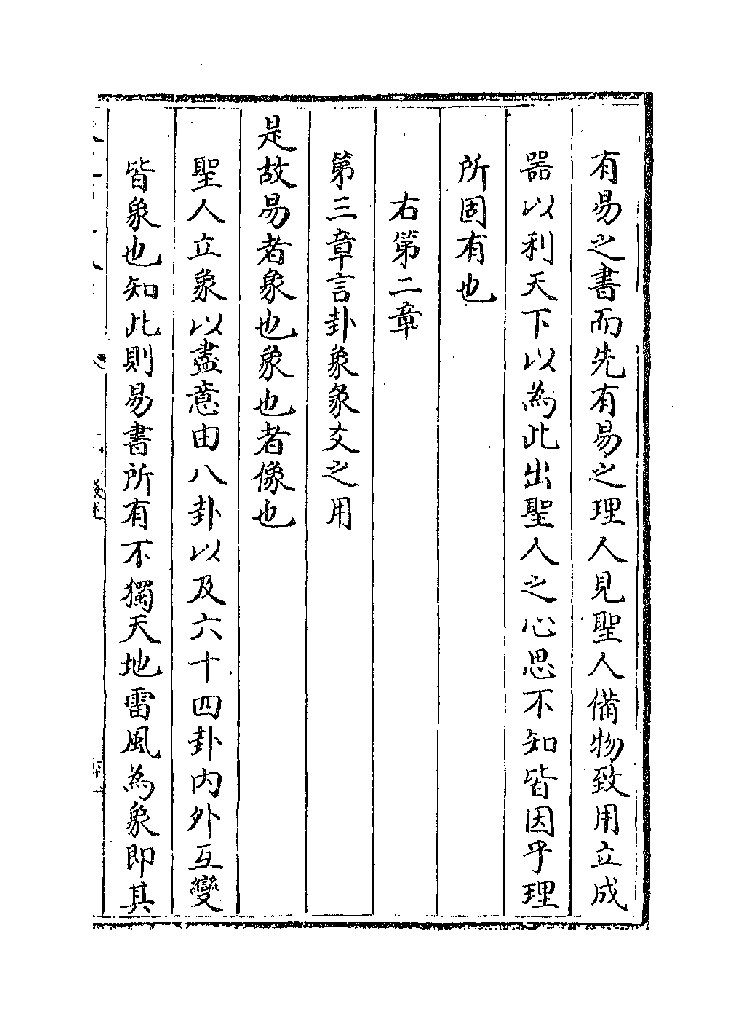 有易之書而先有易之理人見聖人備物致用立成
器以利天下以為此出聖人之心思不知皆因乎理
所固有也
右第二章
第三章言卦象彖爻之用
是故易者象也象也者像也
聖人立象以盡意由八卦以及六十四卦内外互變
皆象也知此則易書所有不獨天地雷風為象即其